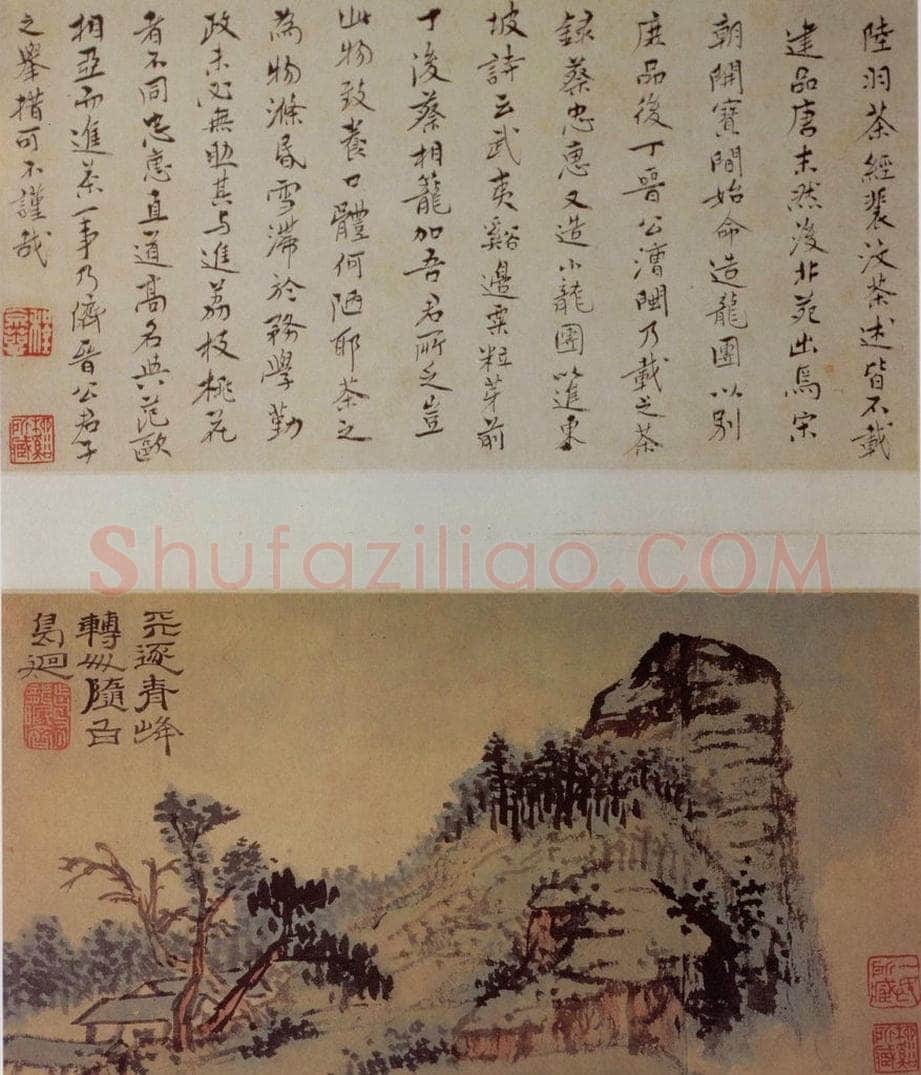 陸羽茶經裴汶茶述皆不載
建品唐末然後北苑出焉宋
朝開寶間始命造龍團以別
庶品後丁晉公漕閩乃載之茶
録蔡忠惠又造小龍團以進東
坡詩云武夷谿邊粟粒芽前
丁後蔡相籠加吾君所乏豈
此物致養口體何陋耶茶之
為物滌昏雪滯於務學勤
政未必無助其與進荔枝桃花
者不同忠惠直道高名與范歐
相亞而進茶一事乃儕晉公君子
之舉措可不謹哉
Shufaziliao.COM
逐青峰
轉 隨白
鳥迴
所藏